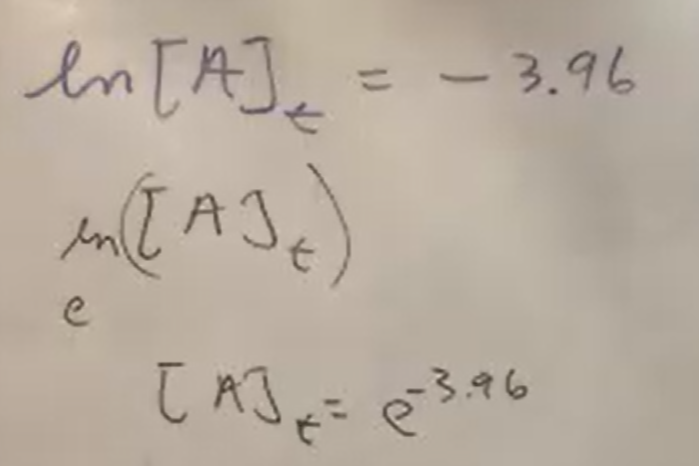 ln[A]t = - 3.96
e^ln([A]t)
[A]t = e^-3.96